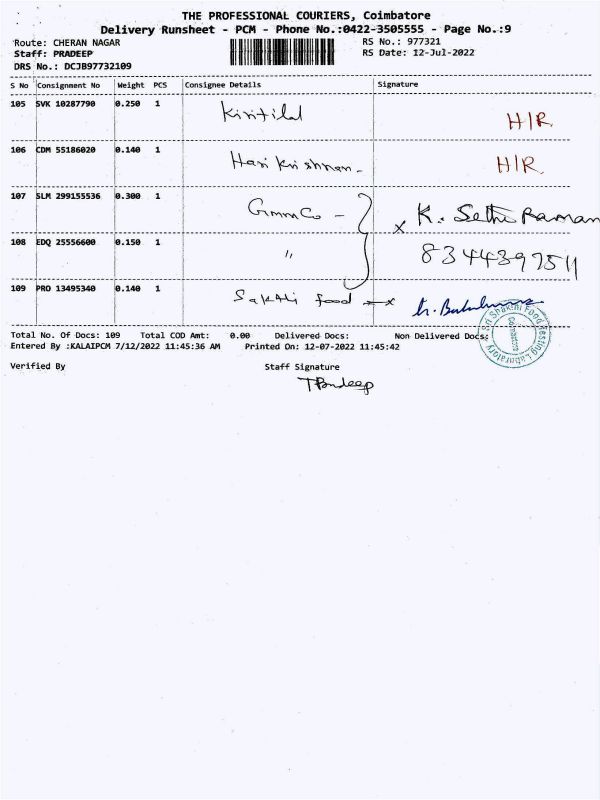 THE PROFESSIONAL COURIERS, Coimbatore
Delivery Runsheet - PCM - Phone No.:0422-3505555 - Page No.:9
Route: CHERAN NAGAR RS No.: 977321
Staff: PRADEEP RS Date: 12-Jul-2022
DRS No.: DCJB97732109
S No Consignment No Weight PCS Consignee Details Signature
105 SVK 10287790 0.250 1 Kirtilal H/R
106 CDM 55186020 0.140 1 Hari Krishnan. H/R
107 SLM 299155536 0.300 1 GmmCo - x K. Sethi Raman
108 EDQ 25556600 0.150 1 " 8344397511
109 PRO 13495340 0.140 1 Sakthi food x
Sri Shakthi Food Testing Laboratory
Coimbatore
Total No. Of Docs: 109 Total COD Amt: 0.00 Delivered Docs: Non Delivered Docs:
Entered By :KALAIPCM 7/12/2022 11:45:36 AM Printed On: 12-07-2022 11:45:42
Verified By Staff Signature